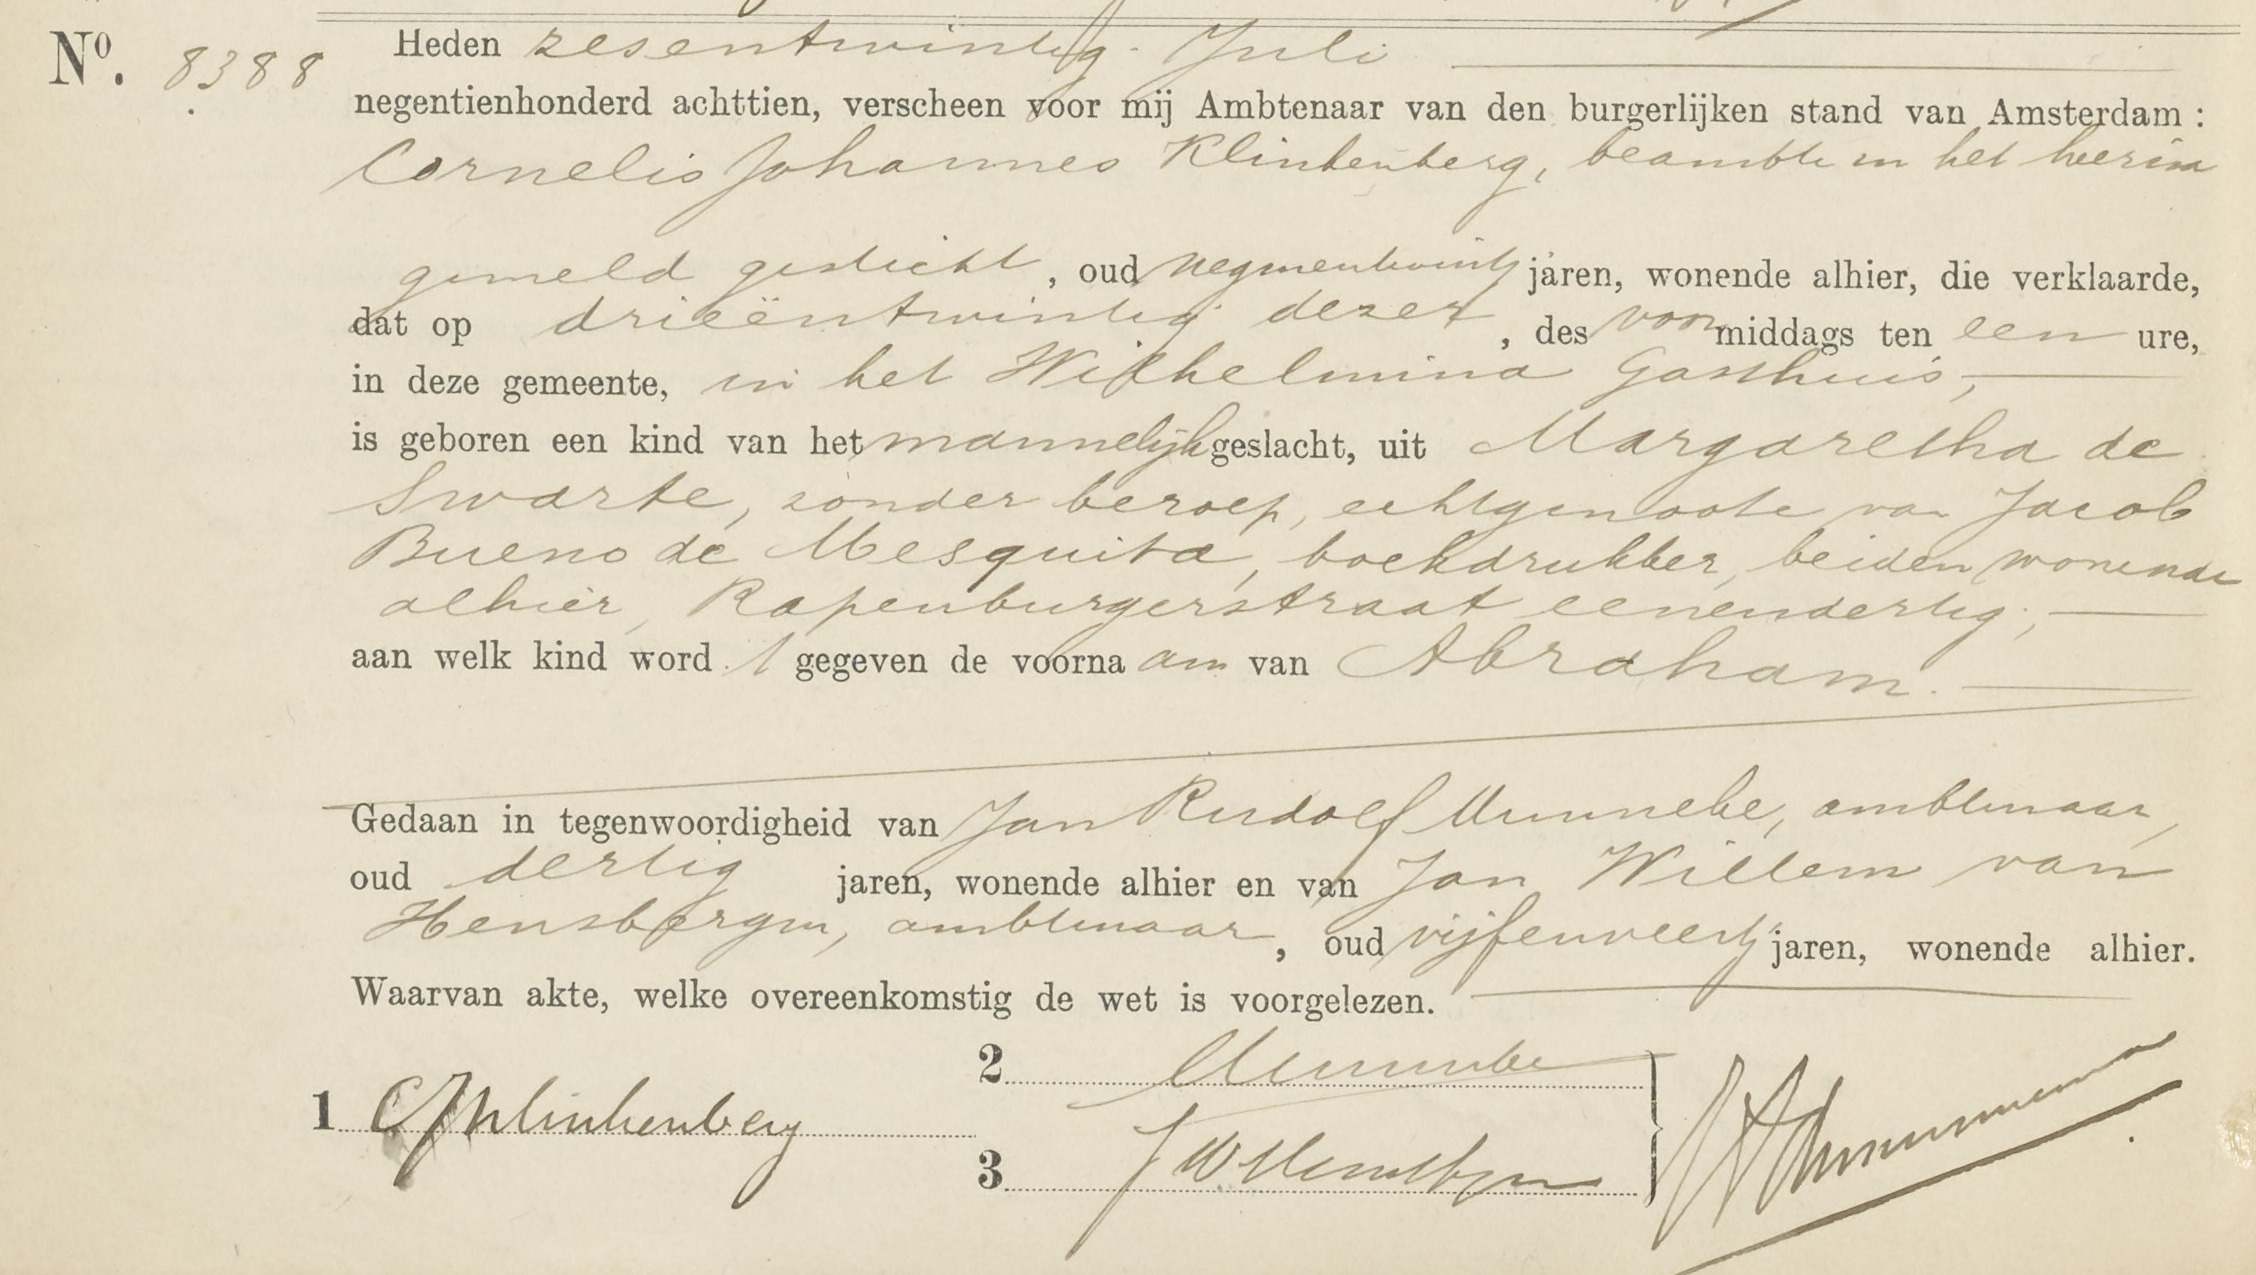 No. 8388
Heden zesentwintig Juli
negentienhonderd achttien, verscheen voor mij Ambtenaar van den burgerlijken stand van Amsterdam:
Cornelis Johannes Klinkenberg, beambte in het hierin
gemeld gesticht, oud negenentwintig jaren, wonende alhier, die verklaarde,
dat op drieëntwintig dezer, des voormiddags ten een ure,
in deze gemeente, in het Wilhelmina Gasthuis,
is geboren een kind van het mannelijk geslacht, uit Margaretha de
Swarte, zonder beroep, echtgenoote van Jacob
Bueno de Mesquita, boekdrukker, beiden wonende
alhier, Rapenburgerstraat eenendertig;
aan welk kind wordt gegeven de voornaam van Abraham.
Gedaan in tegenwoordigheid van Jan Rudolf Munneke, ambtenaar,
oud dertig jaren, wonende alhier en van Jan Willem van
Hensbergen, ambtenaar, oud vijfenveertig jaren, wonende alhier.
Waarvan akte, welke overeenkomstig de wet is voorgelezen.
2 Munneke
1 CJKlinkenberg
3